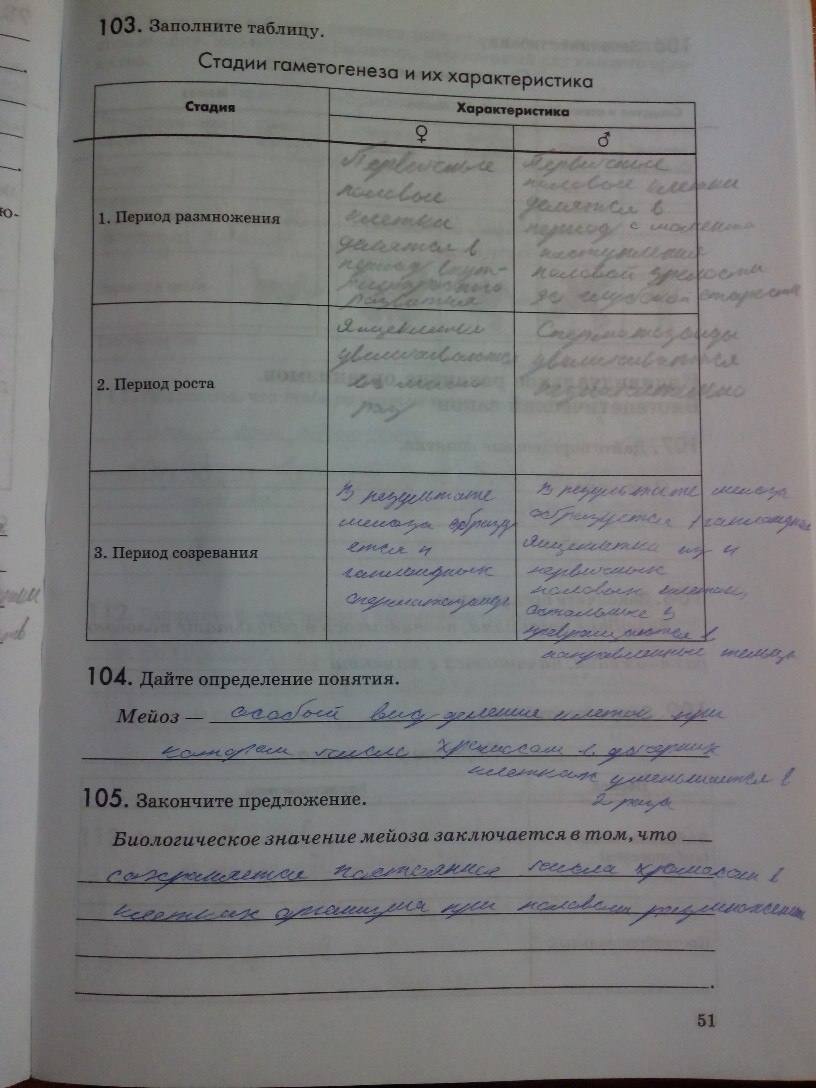 103. Заполните таблицу.
Стадии гаметогенеза и их характеристика
Стадия
Характеристика
♀
♂
1. Период размножения
Первичные
половые
клетки
делятся в
период внут-
развития
Первичные
половые клетки
делятся в
период с момента
наступления
половой зрелости
до глубокой старости
2. Период роста
Яйцеклетки
увеличиваются
в много
раз
Сперматозоиды
увеличиваются
незначительно
3. Период созревания
В результате
мейоза образу
ется 4
гаплоидных
сперматозоида
В результате мейоза
образуется 1 гаплоидная
яйцеклетка из 4
первичных
половых клеток,
остальные 3
превращаются в
направленные тельца
104. Дайте определение понятия.
Мейоз — особый вид деления клеток при
котором число хромосом в дочерних
клетках уменьшается в
2 раза
105. Закончите предложение.
Биологическое значение мейоза заключается в том, что
сохраняется постоянная числа хромосом в
клетках организма при половом размножении
.
51